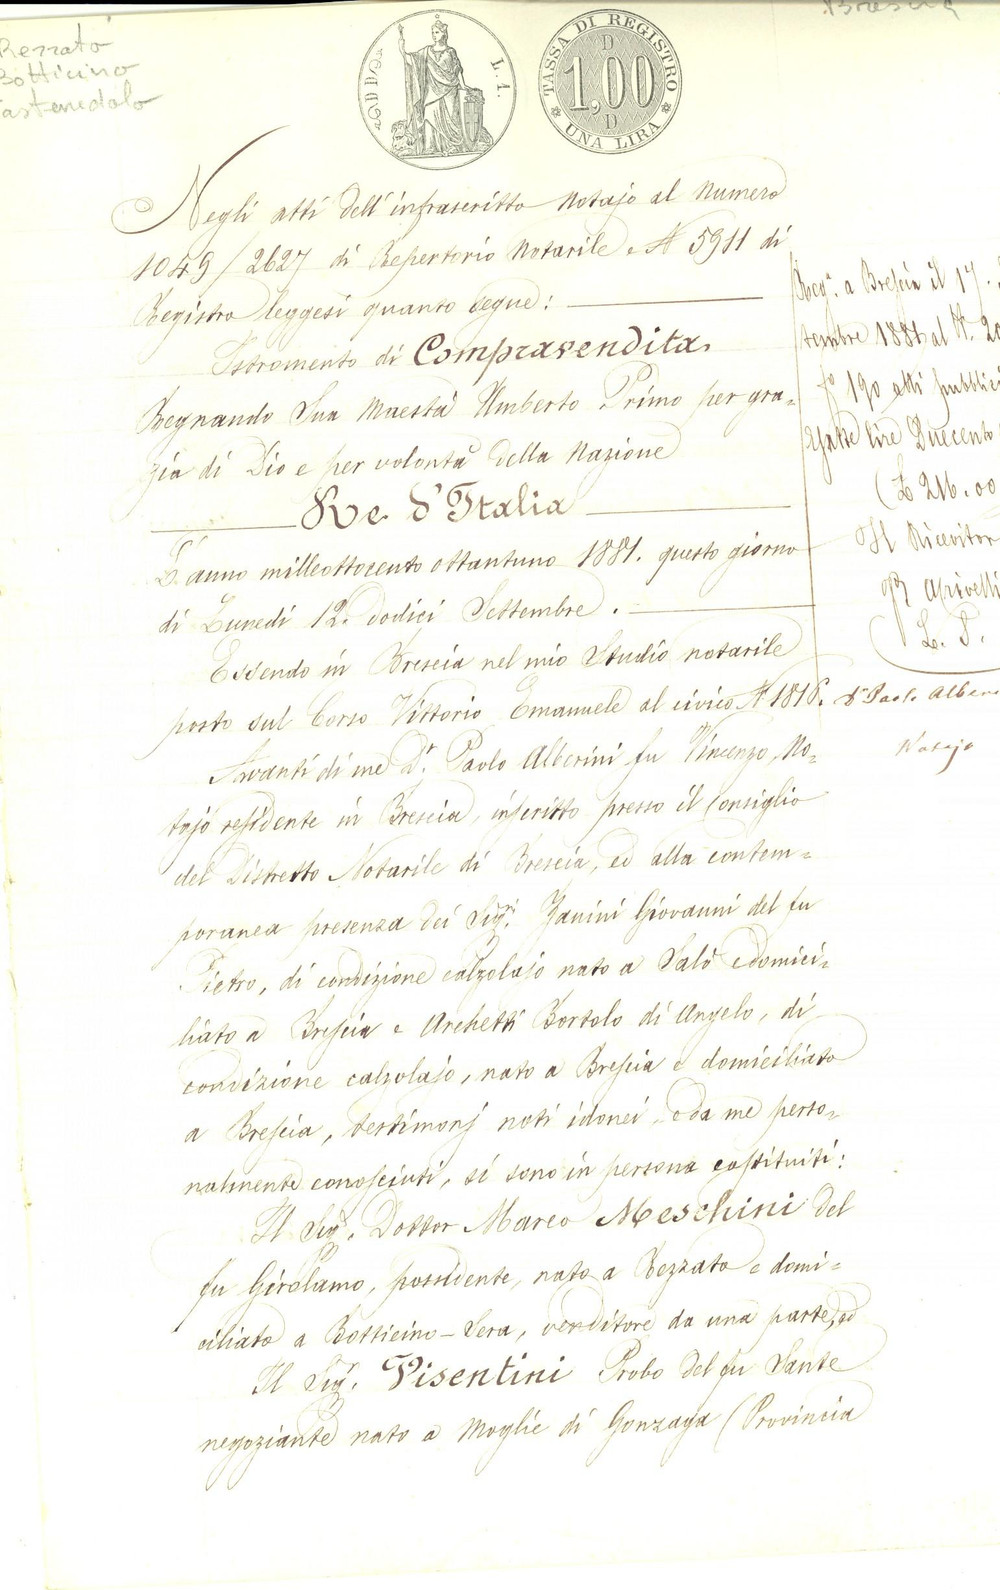 Rezzato
Botticino
Castenedolo
Brescia
L. 1.
TASSA DI REGISTRO
D
1,00
D
UNA LIRA
Negli atti dell'infrascritto Notajo al Numero
1049/2627 di Repertorio Notarile e N 5911 di
Registro leggesi quanto segue:
Istromento di Compravendita.
Regnando Sua Maestà Umberto Primo per gra=
zia di Dio e per volontà della Nazione
Re d'Italia
L'anno milleottocento ottantuno 1881. questo giorno
di Lunedì 12. dodici Settembre.
Essendo in Brescia nel mio Studio notarile
posto sul Corso Vittorio Emanuele al civico N 1816.
Avanti di me Dr. Paolo Alberini fu Vincenzo, No=
tajo residente in Brescia, inscritto presso il Consiglio
del Distretto Notarile di Brescia, ed alla contem=
poranea presenza dei Sigri. Zanini Giovanni del fu
Pietro, di condizione calzolajo nato a Salò e domici=
liato a Brescia e Archetti Bortolo di Angelo, di
condizione calzolajo, nato a Brescia e domiciliato
a Brescia, testimonj noti idonei, e da me perso=
nalmente conosciuti, si sono in persona costituiti:
Il Sigr. Dottor Marco Meschini del
fu Girolamo, possidente, nato a Rezzato e domi=
ciliato a Botticino-Sera, venditore da una parte, ed
Il Sigr. Visentini Probo del fu Sante
negoziante nato a Moglie di Gonzaga (Provincia
Regº. a Brescia il 17.
tembre 1881 al N. 20
fº 190 atti pubblici
esatte lire Duecento
(L 216.00
Il Ricevitor
L. S.
Dr Paolo Alberi
Notajo